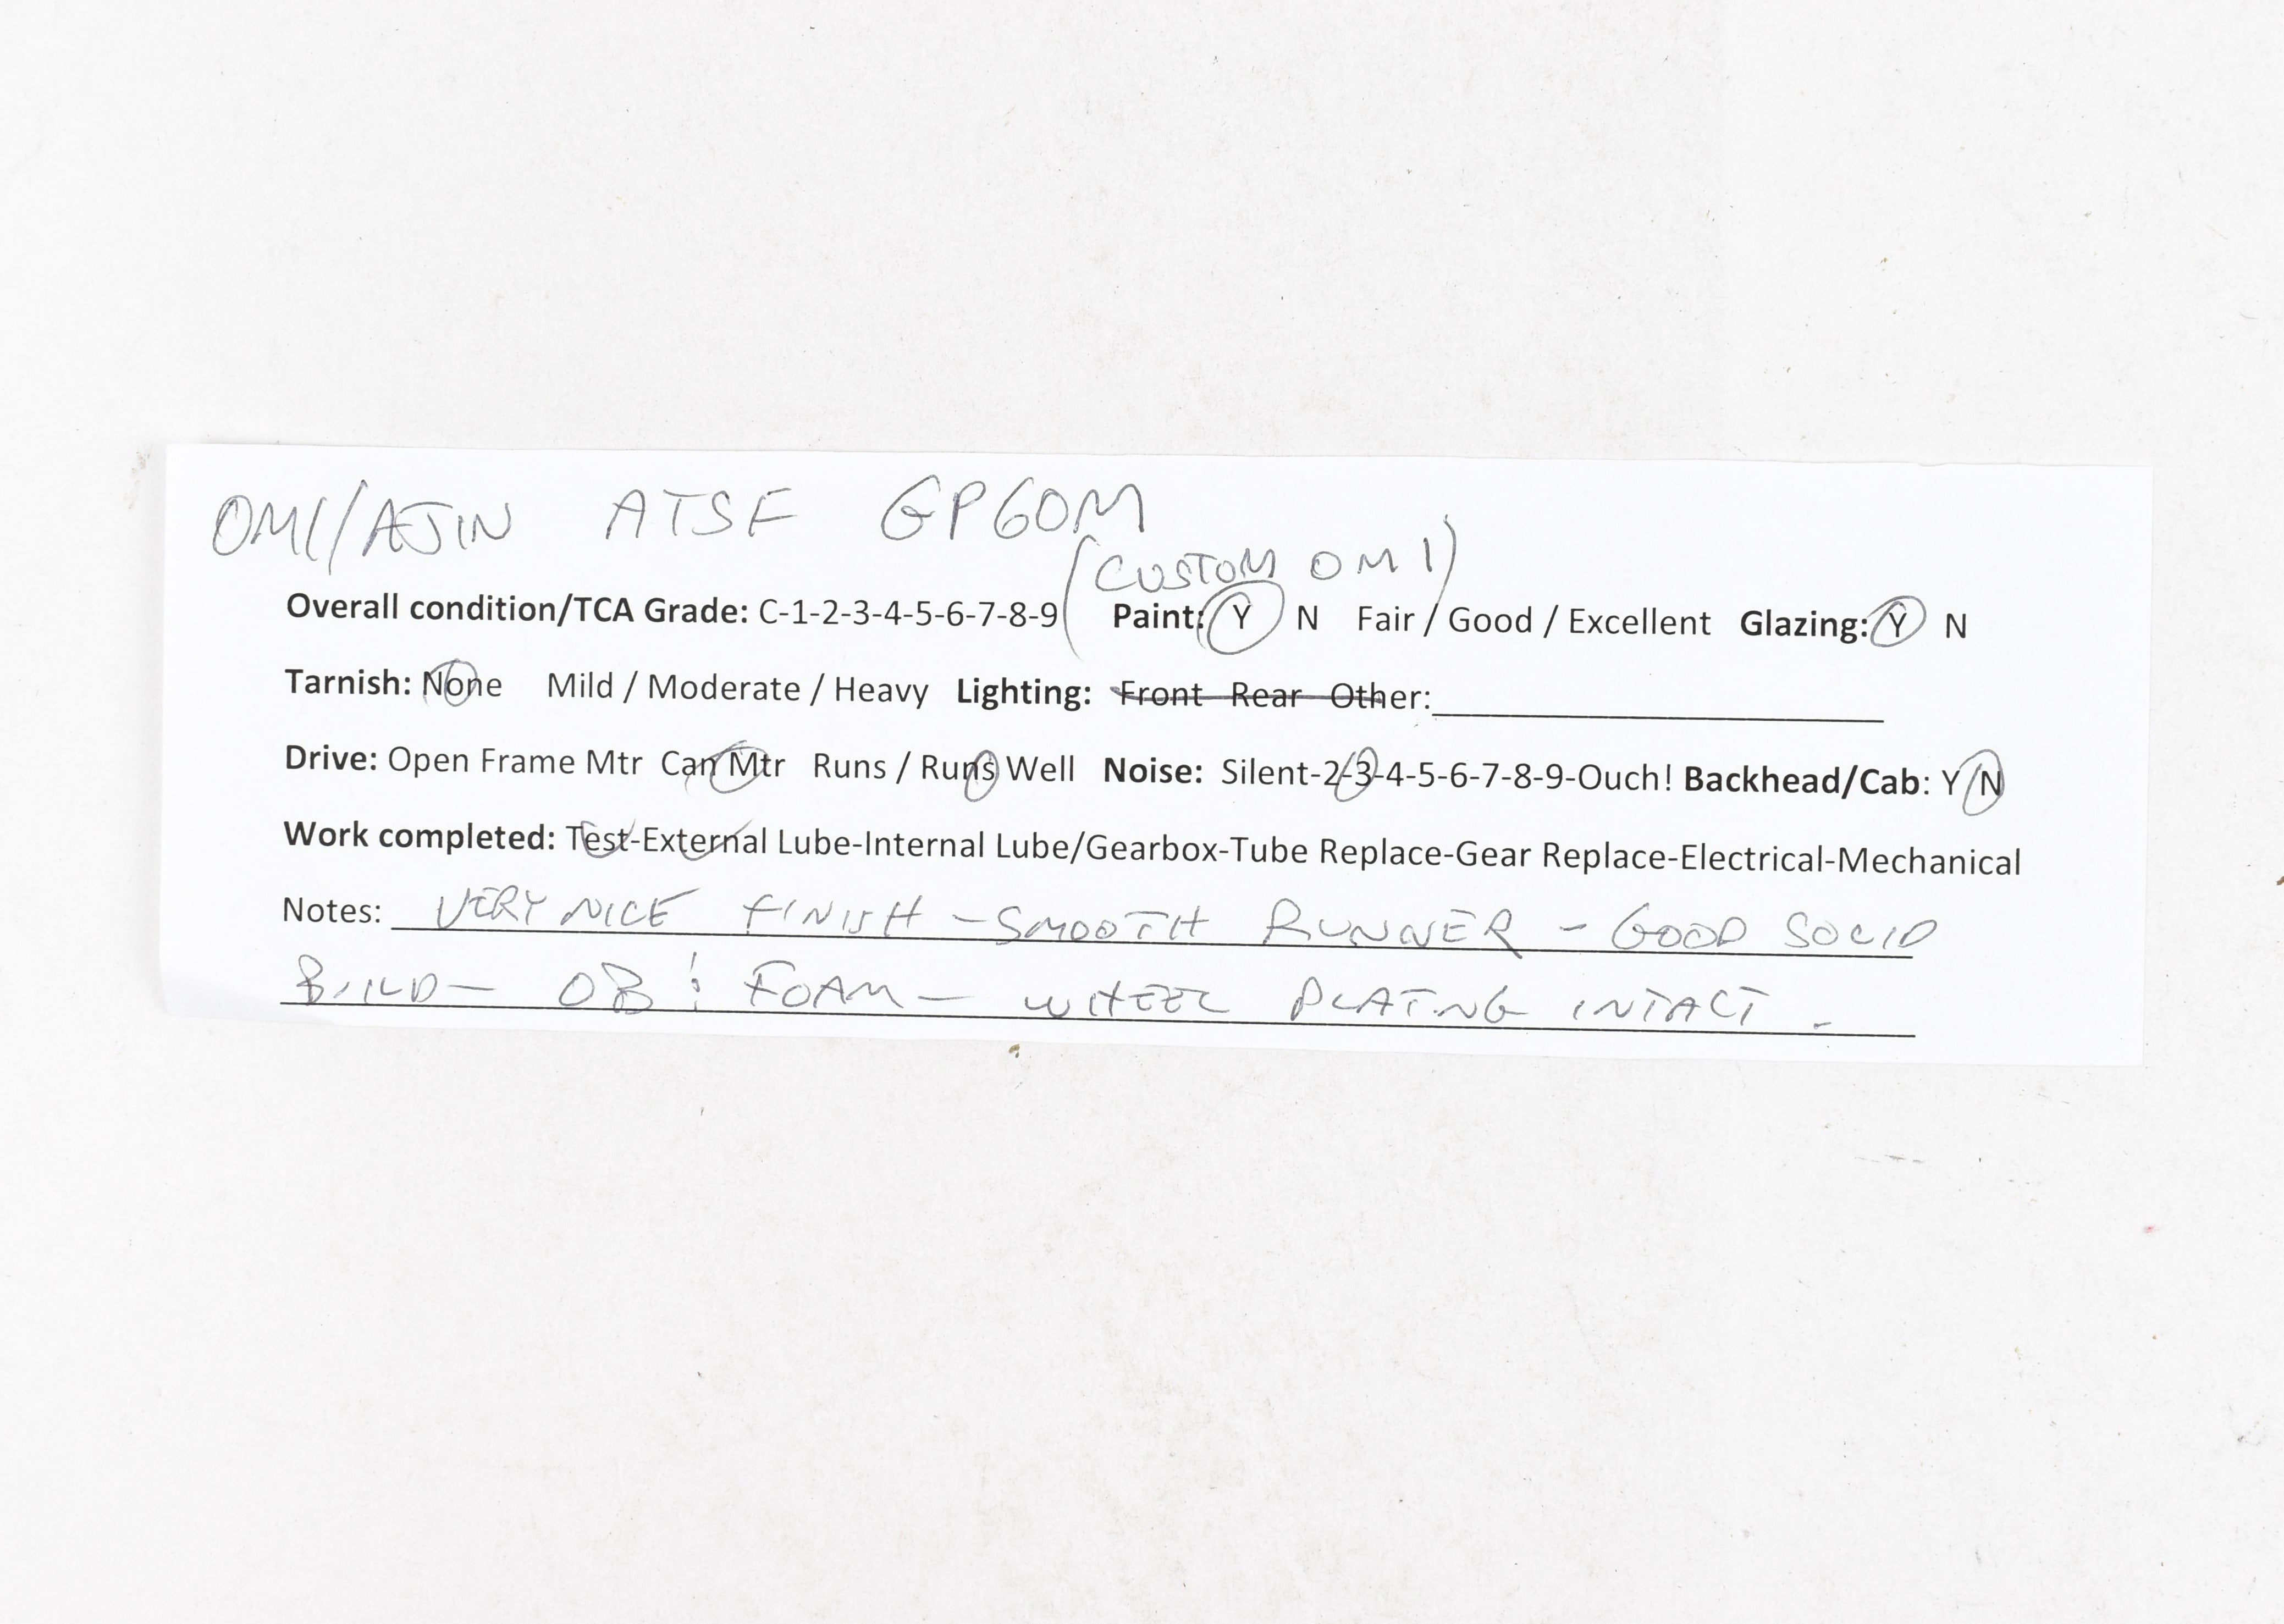 OMI/AJIN ATSF GP60M
(CUSTOM OMI)
Overall condition/TCA Grade: C-1-2-3-4-5-6-7-8-9 Paint: Y N Fair / Good / Excellent Glazing: Y N
Tarnish: None Mild / Moderate / Heavy Lighting: Front Rear Other:
Drive: Open Frame Mtr Can Mtr Runs / Runs Well Noise: Silent-2-3-4-5-6-7-8-9-Ouch! Backhead/Cab: Y/N
Work completed: Test-External Lube-Internal Lube/Gearbox-Tube Replace-Gear Replace-Electrical-Mechanical
Notes: VERY NICE FINISH - SMOOTH RUNNER - GOOD SOLID
BUILD - OB & FOAM - WHEEL PLATING INTACT -